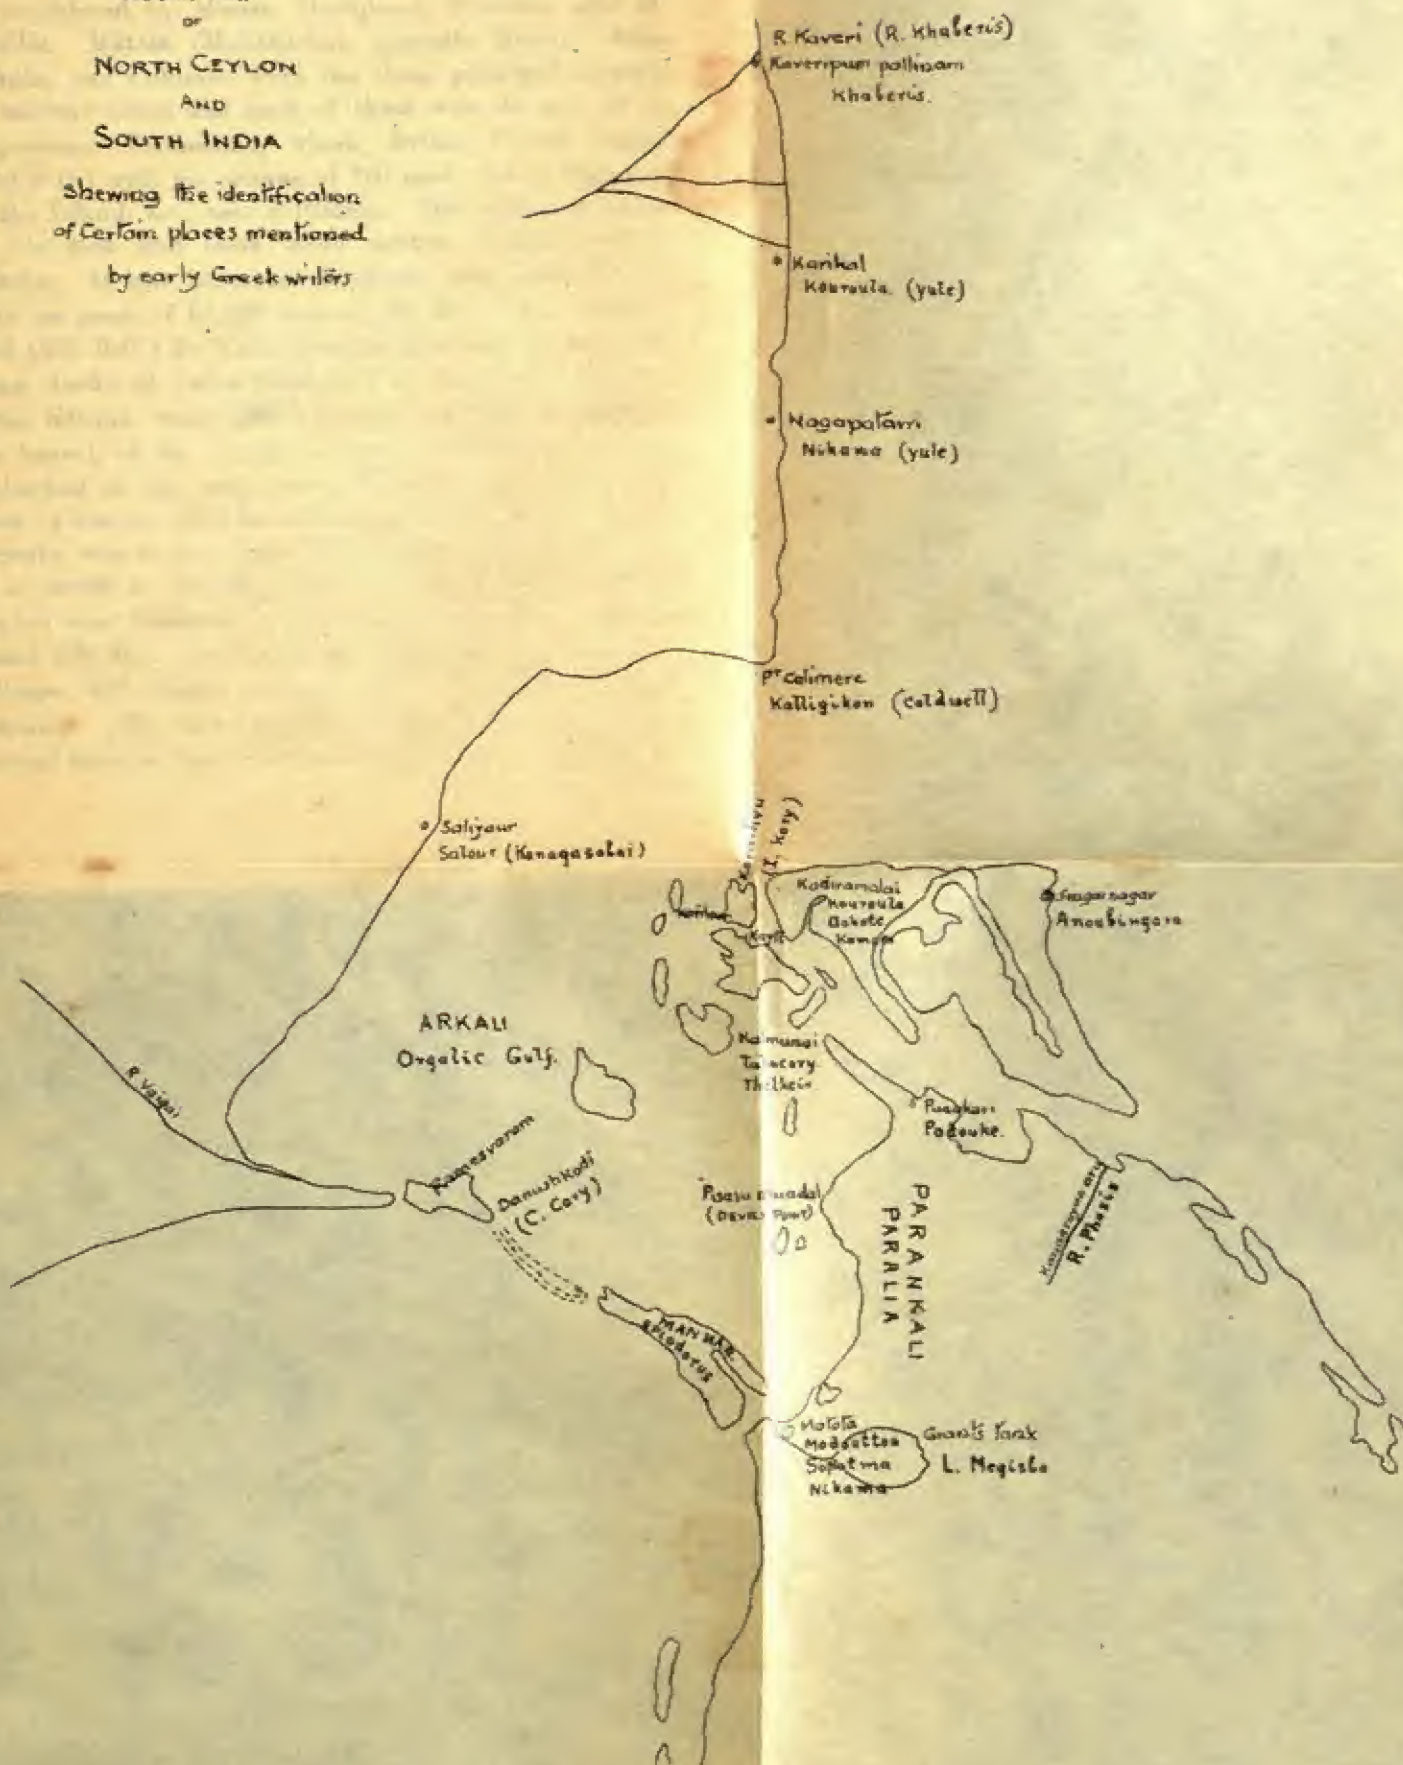 OF
NORTH CEYLON
AND
SOUTH INDIA
Shewing the identification
of Certain places mentioned
by early Greek writers
R. Kaveri (R. Khaberis)
Kaveripum pattinam
Khaberis.
Karikal
Kouroula. (yule)
Nagapatam
Nikama (yule)
Pt Calimere
Kalligikon (Caldwell)
Saliyaur
Salour (Kanagasalai)
(I. Kory)
Kadiramalai
Kouroula
Dakote
Anoubingara
ARKALI
Orgalic Gulf.
Kalmunai
Talacory
R. Vaigai
Ramesvaram
Danushkodi
(C. Cory)
Padouke.
(DEVILS POINT)
PARANKALI
PARALIA
R. Phasis
MANNAR.
EPIODORUS
Matota
Modouttou
Nikama
Giant's Tank
L. Megisba